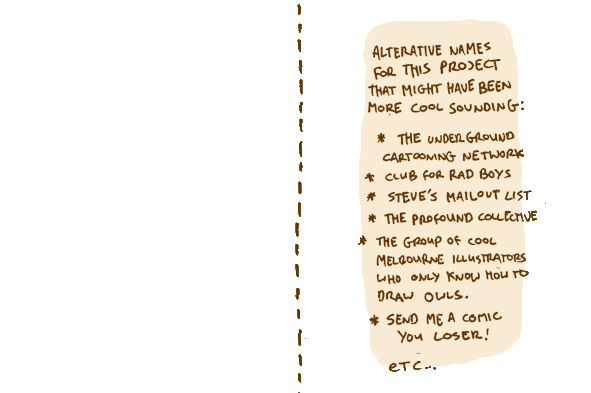 ALTERATIVE NAMES
FOR THIS PROJECT
THAT MIGHT HAVE BEEN
MORE COOL SOUNDING:
* THE UNDERGROUND
CARTOONING NETWORK
* CLUB FOR RAD BOYS
* STEVE'S MAILOUT LIST
* THE PROFOUND COLLECTIVE
* THE GROUP OF COOL
MELBOURNE ILLUSTRATORS
WHO ONLY KNOW HOW TO
DRAW OWLS.
* SEND ME A COMIC
YOU LOSER!
ETC...